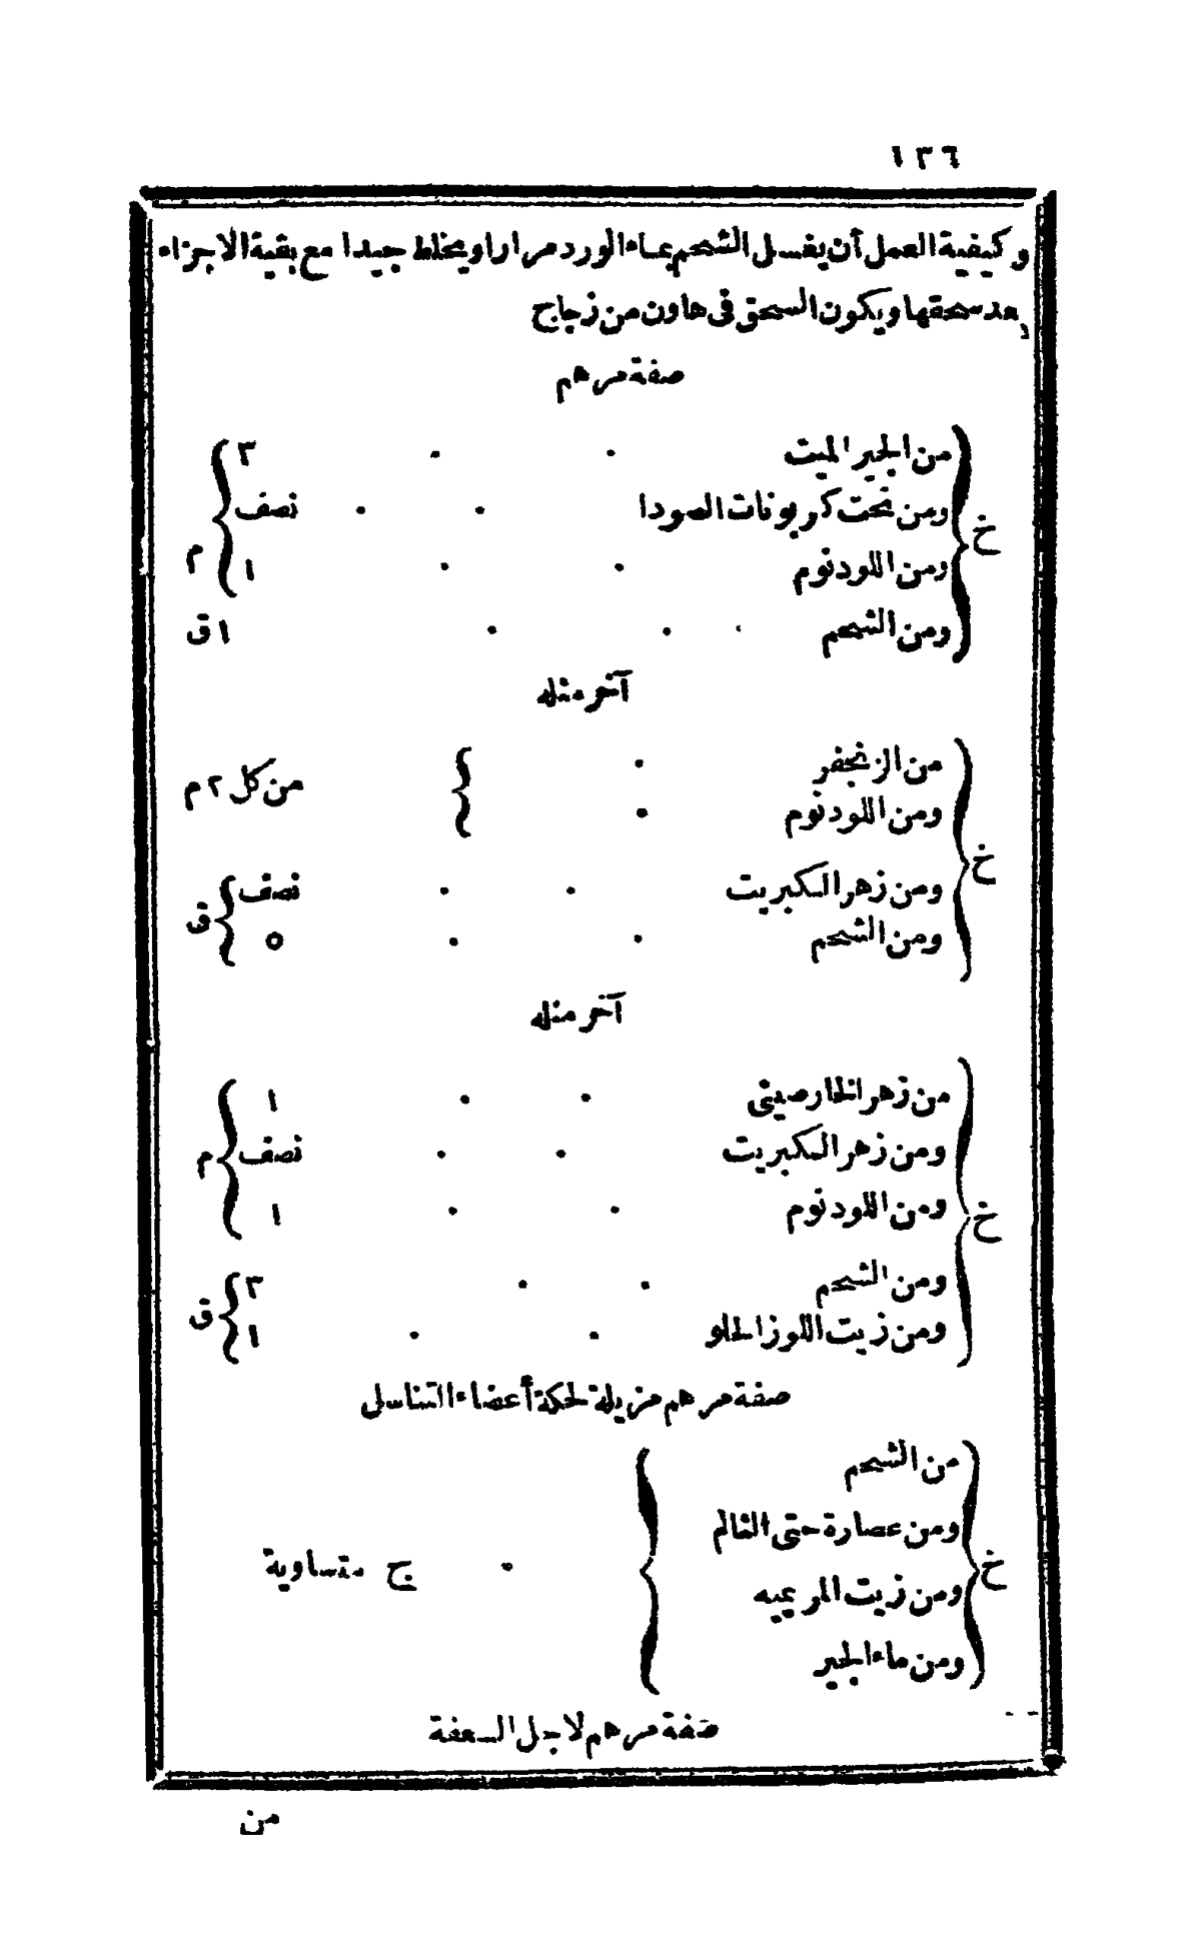 ١٣٦
وكيفية العمل أن يغسل الشحم بماء الورد مرارا ويخلط جيدا مع بقية الاجزاء
بعد سحقها ويكون السحق فى هاون من زجاج
صفة مرهم
خ { من الجير الميت . . ٣
ومن تحت كربونات الصودا . . نصف
ومن اللودنوم . . ١ } م
ومن الشحم . . ١ ق
آخر مثله
خ { من الزنجفر .
ومن اللودنوم . } من كل ٢ م
ومن زهر الكبريت . . نصف
ومن الشحم . . ٥ } ق
آخر مثله
خ { من زهر الخارصينى . . ١
ومن زهر الكبريت . . نصف
ومن اللودنوم . . ١ } م
ومن الشحم . . ٣
ومن زيت اللوز الحلو . . ١ } ق
صفة مرهم مزيلة لحكة أعضاء التناسل
خ { من الشحم
ومن عصارة حتى الثالم
ومن زيت المريميه
ومن ماء الجير } . ج متساوية
صفة مرهم لاجل السعفة
من